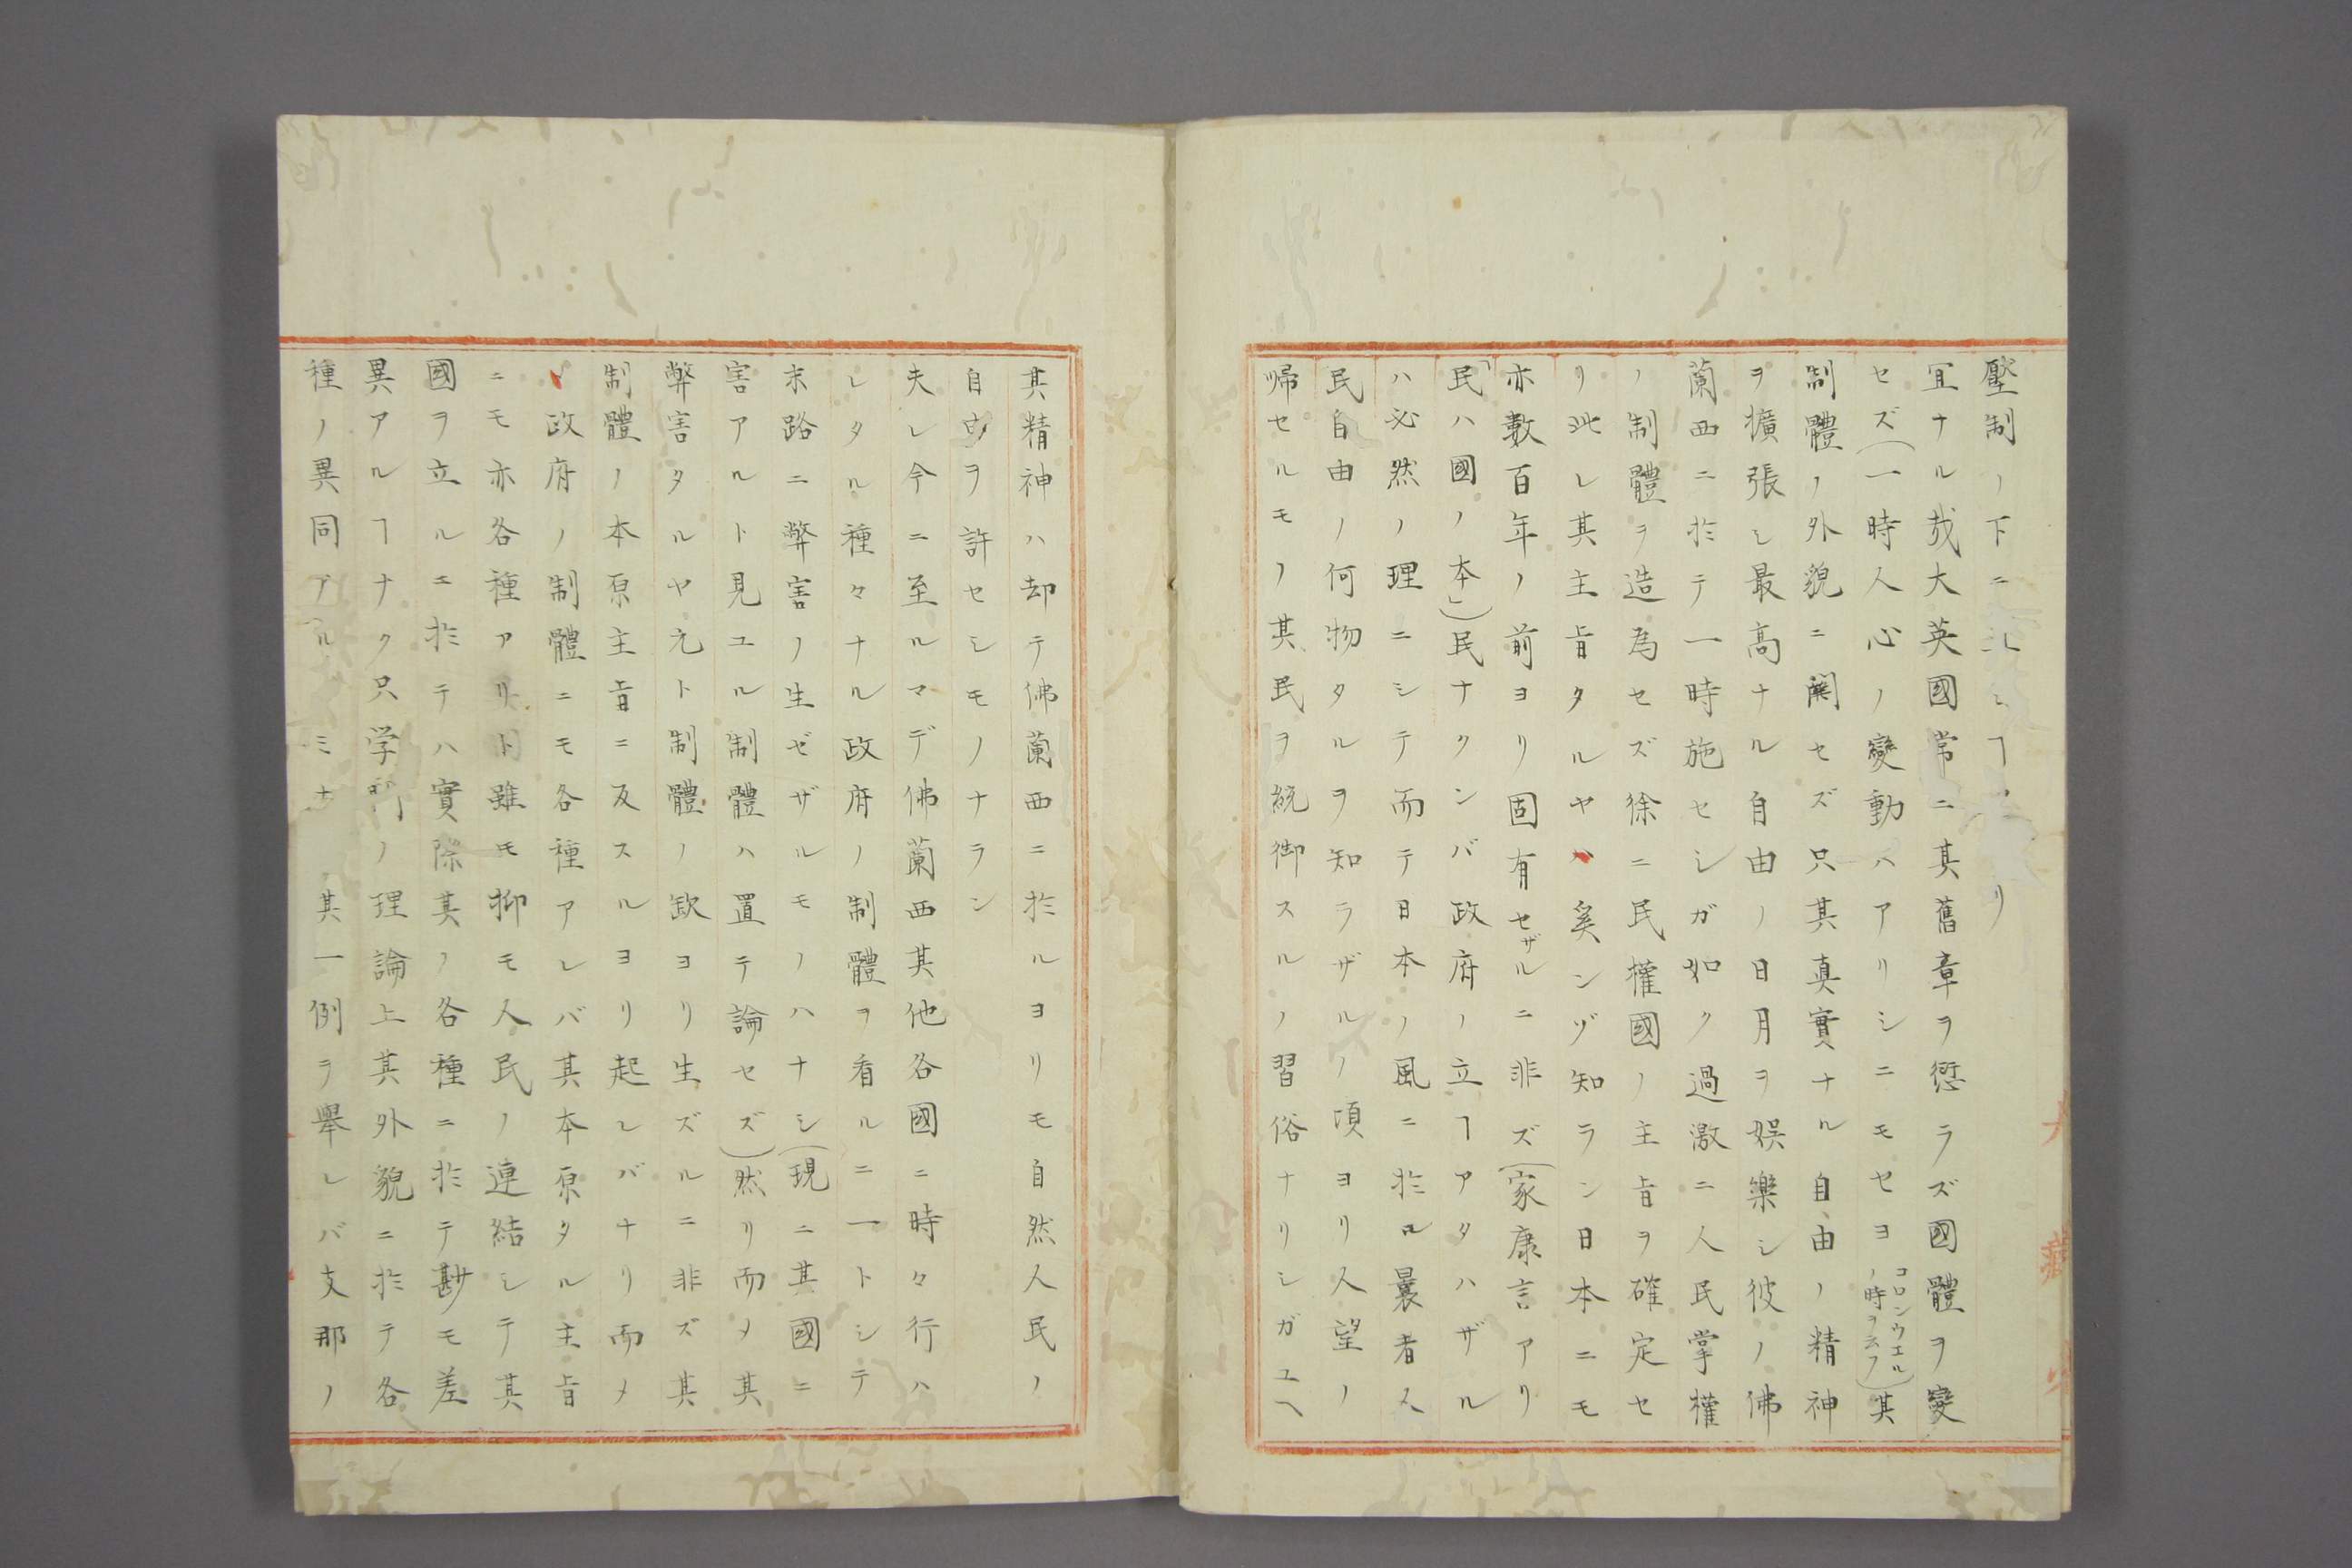 壓制ノ下ニ
宜ナル哉大英國常ニ其舊章ヲ愆ラズ國體ヲ變
セズ(一時人心ノ變動ハアリシニモセヨコロンウエルノ時ヲ云フ)其
制體ノ外貌ニ關セズ只其真實ナル自由ノ精神
ヲ擴張シ最高ナル自由ノ日月ヲ娯樂シ彼ノ佛
蘭西ニ於テ一時施セシガ如ク過激ニ人民掌權
ノ制體ヲ造為セズ徐ニ民權國ノ主旨ヲ確定セ
リ此レ其主旨タルヤ奚ンゾ知ラン日本ニモ
亦數百年ノ前ヨリ固有セザルニ非ズ(家康言アリ
「民ハ國ノ本」)民ナクンバ政府ノ立ヿアタハザル
ハ必然ノ理ニシテ而テ日本ノ風ニ於ル曩者人
民自由ノ何物タルヲ知ラザルノ頃ヨリ人望ノ
帰セルモノ其民ヲ統御スルノ習俗ナリシガユヘ
其精神ハ却テ佛蘭西ニ於ルヨリモ自然人民ノ
自由ヲ許セシモノナラン
夫レ今ニ至ルマデ佛蘭西其他各國ニ時々行ハ
レタル種々ナル政府ノ制體ヲ看ルニ一トシテ
末路ニ弊害ノ生ゼザルモノハナシ(現ニ其國ニ
害アルト見ユル制體ハ置テ論セズ)然リ而メ其
弊害タルヤ元ト制體ノ欽ヨリ生ズルニ非ズ其
制體ノ本原主旨ニ反スルヨリ起レバナリ而メ
政府ノ制體ニモ各種アレバ其本原タル主旨
ニモ亦各種アリト雖モ抑モ人民ノ連結シテ其
國ヲ立ルニ於テハ實際其ノ各種ニ於テ尠モ差
異アルヿナク只学門ノ理論上其外貌ニ於テ各
種ノ異同アルミナ 其一例ヲ舉レバ支那ノ